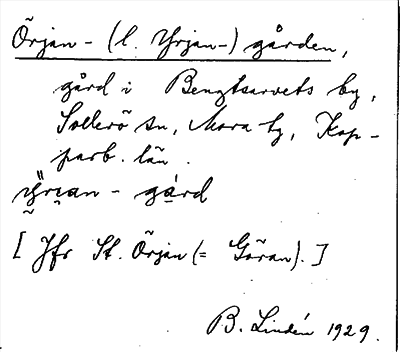 Örjan- (l. Yrjan-) gården,
gård i Bengtsarvets by,
Sollerö sn, Mora tg, Kop-
parb. län.
ÿ̰rɪ̰an - gá̱rd
[Jfr St. Örjan (= Göran).]
B. Lindén 1929.